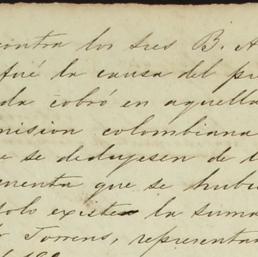 contra los tres B. A
fué la causa del pr
da cobró en aquella
misión colombiana
e se dedujesen de l
menta que se hubi
solo existe la suma
Torrens, representan